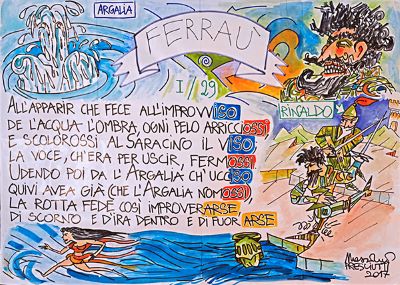 ARGALIA
FERRAU'
I/29
RINALDO
ALL'APPARIR CHE FECE ALL'IMPROVVISO
DE L'ACQUA L'OMBRA, OGNI PELO ARRICCIOSSI
E SCOLOROSSI AL SARACINO IL VISO
LA VOCE, CH'ERA PER USCIR, FERMOSSI
UDENDO POI DA L'ARGALIA CH'UCCISO
QUIVI AVEA GIÀ (CHE L'ARGALIA NOMOSSI)
LA ROTTA FEDE COSÌ IMPROVERARSE,
DI SCORNO E D'IRA DENTRO E DI FUOR ARSE
PRESCIUTTI
2017